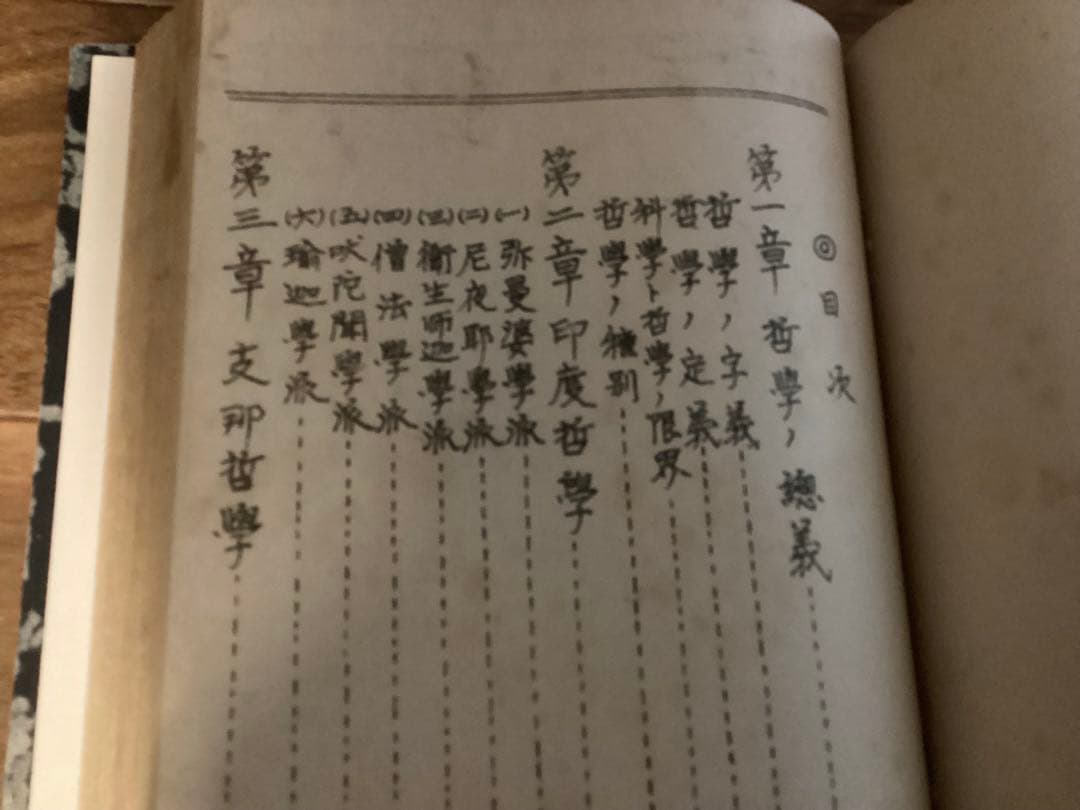 ◎目次
第一章 哲學ノ總義
哲學ノ字義
哲學ノ定義
科學ト哲學ノ限界
哲學ノ種別
第二章 印度哲學
(一)弥曼婆學派
(二)尼夜耶學派
(三)衞生師迦學派
(四)僧法學派
(五)吠陀聞學派
(六)瑜迦學派
第三章 支那哲學